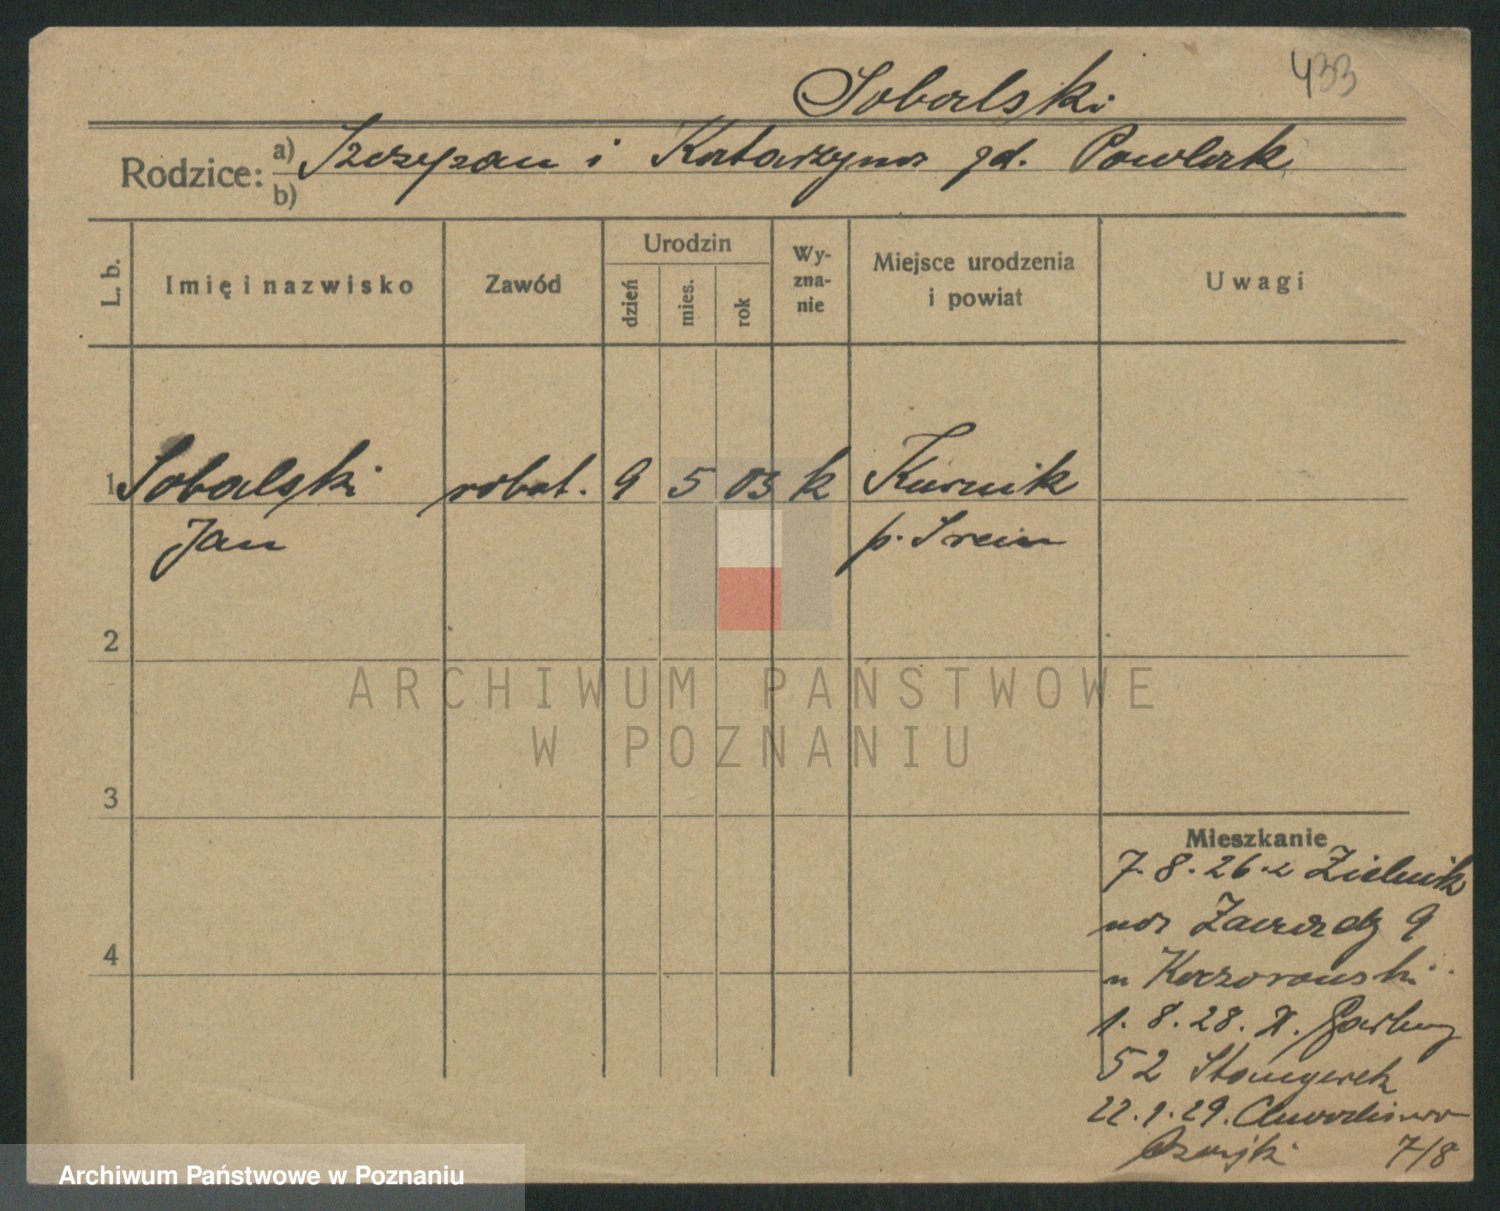 433
Sobalski
Rodzice: a) Szczepan i Katarzyna zd. Pawlak
b)
L. b.
Imię i nazwisko
Zawód
Urodzin
dzień
mies.
rok
Wy-
zna-
nie
Miejsce urodzenia
i powiat
Uwagi
1 Sobalski robot. 9 5 03 k Kurnik
Jan p. Srem
2
ARCHIWUM PAŃSTWOWE
W POZNANIU
3
Mieszkanie
7.8.26. z Zielnik
na Zawady 9
4
u Kaczorowski
1.8.28. Garbary
52
22.1.29.
7/8
Archiwum Państwowe w Poznaniu